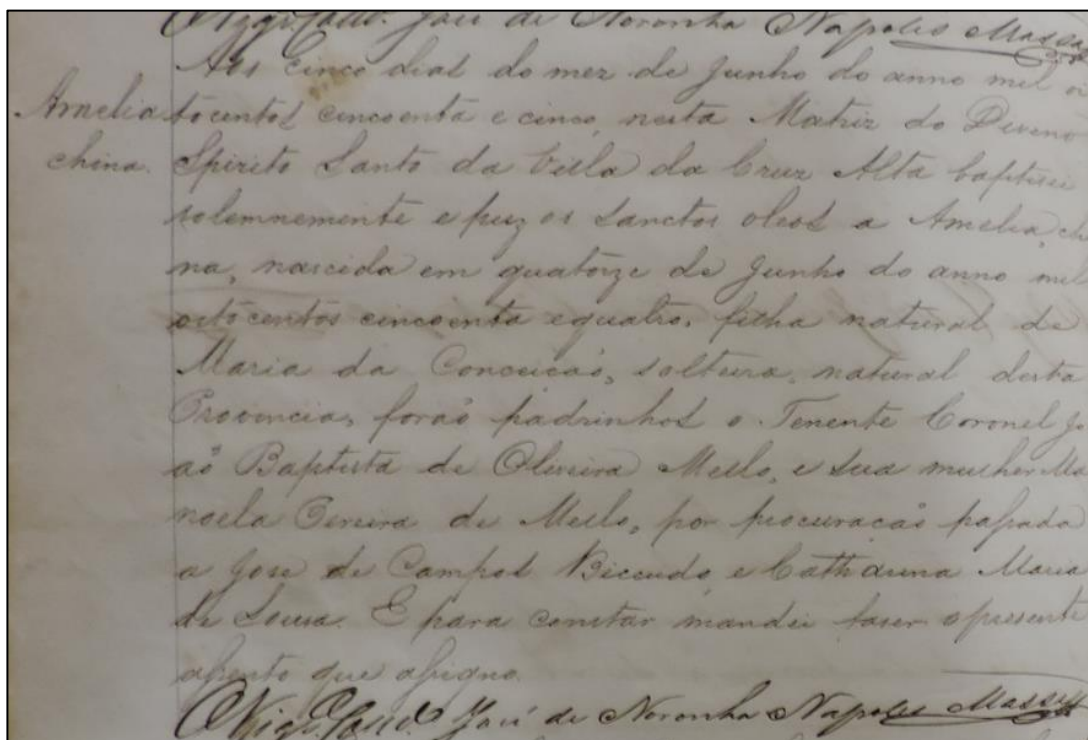 Vigr.º Cald.º José de Noronha Napoles Massa
Aos cinco dias do mez de Junho do anno mil oi
Amelia
tocentos cincoenta e cinco, nesta Matriz do Devino
china.
Spirito Santo da Villa da Cruz Alta baptisei
solemnemente e puz os Sanctos oleos a Amelia, chi
na, nascida em quatorze de Junho do anno mil
oitocentos cincoenta e quatro, filha natural de
Maria da Conceicaõ, solteira, natural desta
Provincia, foraõ padrinhos o Tenente Coronel Jo
aõ Baptista de Oliveira Mello, e sua mulher Ma
noela Pereira de Mello, por procuracaõ passada
a Jose de Campos Biccudo, e Catharina Maria
de Sousa. E para constar mandei faser o presente
assento que assigno.
José de Noronha Napoles Massa